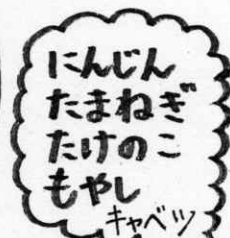 にんじん
たまねぎ
たけのこ
もやし
キャベツ